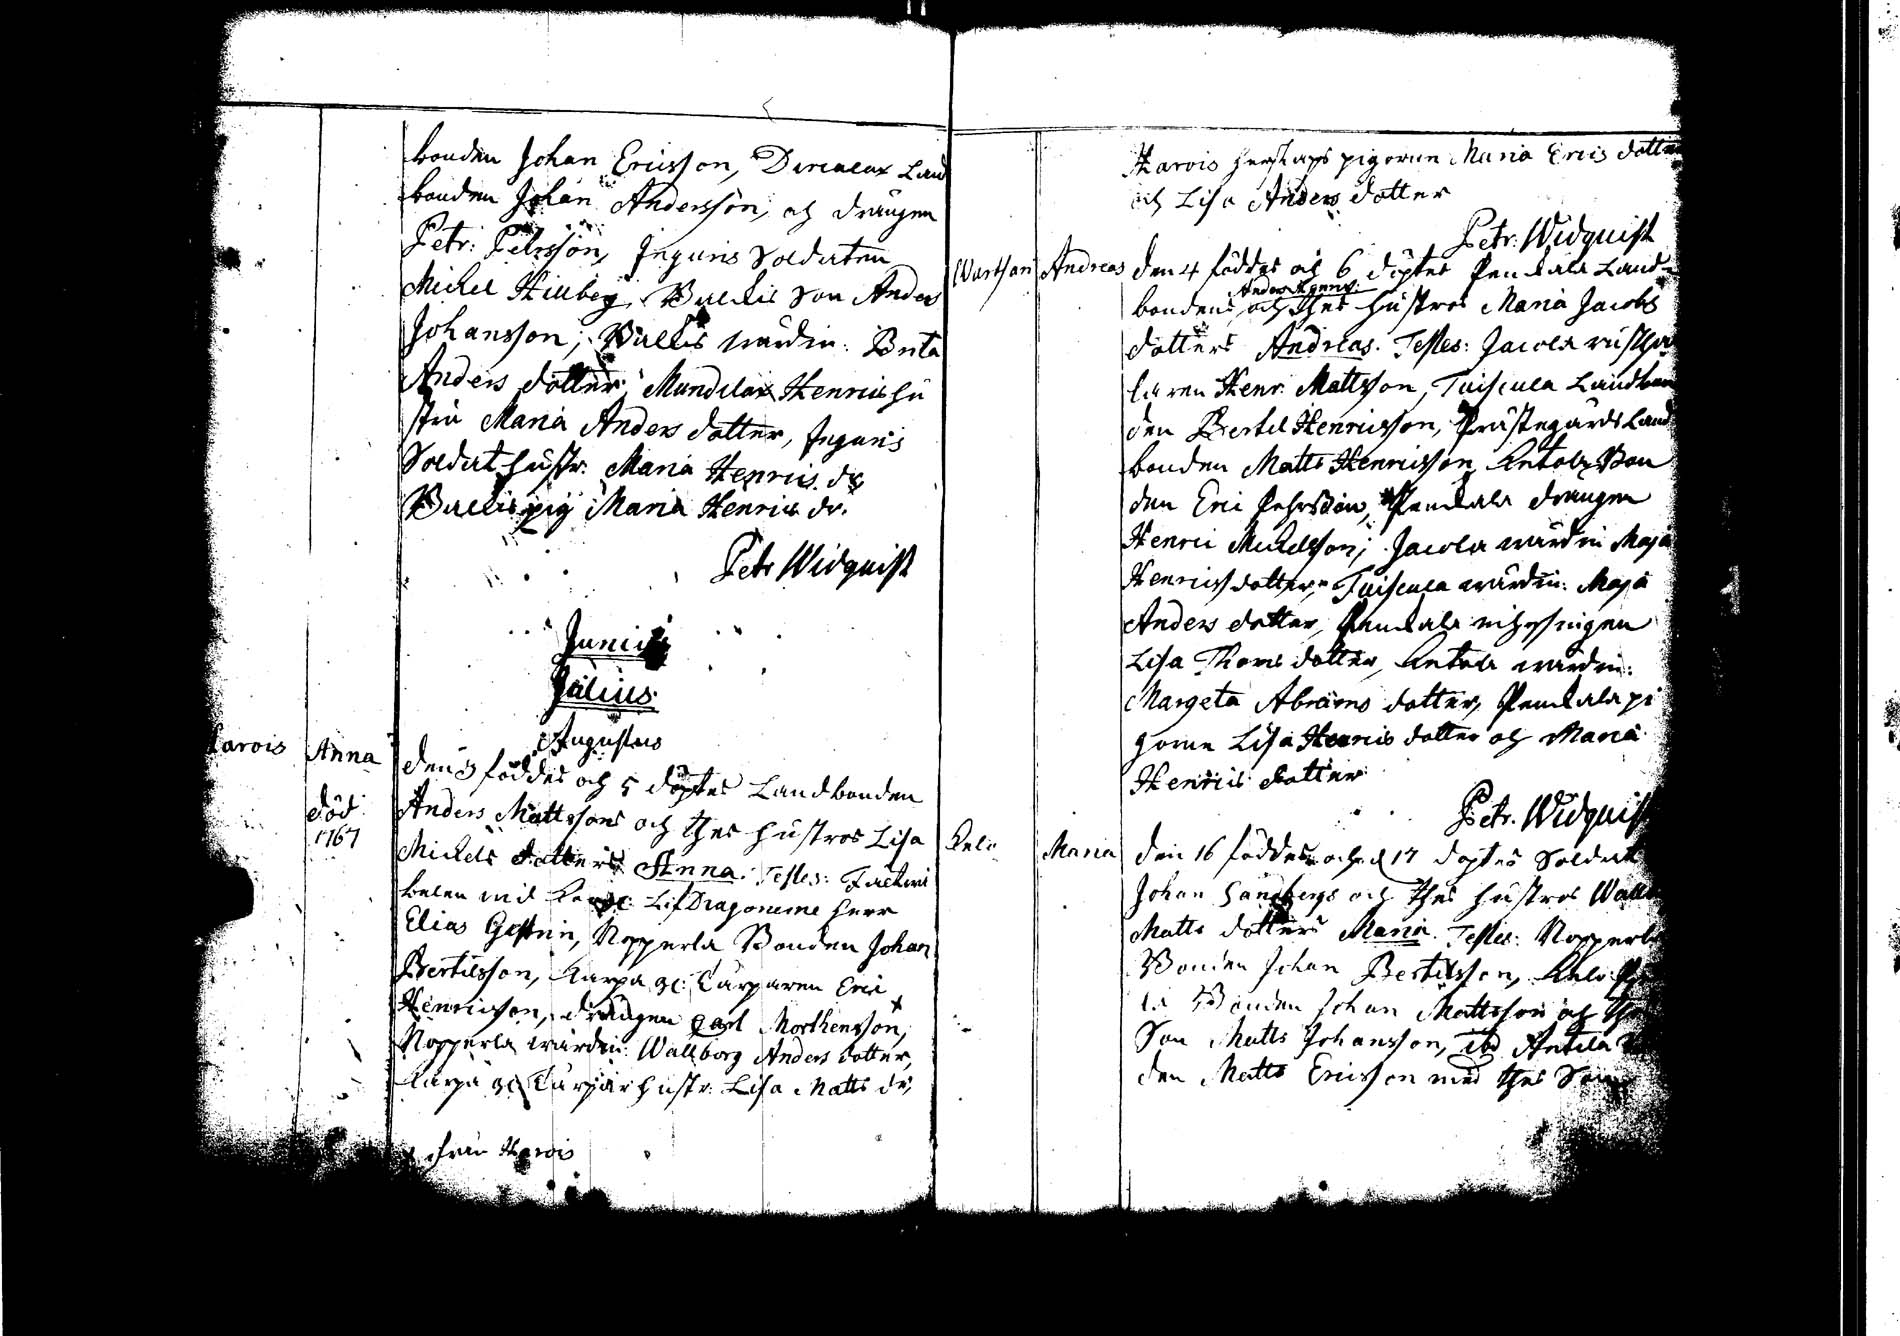 bonden Johan Ericsson, Land
bonden Johan Andersson, och drängen
Petr: Petersson, Inguris Soldaten
Michel Hillberg, Ballis Son Anders
Johansson; Ballis wärdin: Brita
Anders dotter, Mundelax Henrics hu
stru Maria Anders dotter, Inguris
Soldat hustr: Maria Henrics dr
Ballis pig Maria Henrics dr.
Petr Widquist
Junius
Julius.
Augustus
Karois Anna den 3 föddes och 5 döptes Landbonden
död 1767
Anders Mattssons och thes hustros Lisa
Michels dotters Anna. Testes:
wid Lif Dragonerne Herr
Elias Nopperla Bonden Johan
Bertilsson, Karpa Eric
Henricsson, drängen Carl Morthensson, x
Nopperla wärdin: Wallborg Anders dotter,
Karpa hustr: Lisa Matts dr,
x från Harois
Harois herskaps pigorna Maria Erics dotter
och Lisa Anders dotter
Petr: Widquist
Andreas den 4 föddes och 6 döptes Penkala Land-
bondens Anders och thes hustros Maria Jacobs
dotters Andreas. Testes: Jacola rusthål
laren Henr: Mattsson, Tuiscula Landbon
den Bertel Henricsson, Prästegårds Land
bonden Matts Henricsson, Antola Bon
den Eric Pehrsson, Penkala drängen
Henric Michelsson; Jacola wärdin Maja
Henricsdotter, Tuiscula wärdin: Maja
Anders dotter, Penkala inhysingen
Lisa Thoms dotter, Antola wärdin:
Margeta Abrams dotter, Penkala pi
gorna Lisa Henrics dotter och Maria
Henrics dotter
Petr. Widquist
Maria den 16 föddes och d 17 döptes Soldat
Johan Sandbergs och thes hustros Wallb
Matts dotters Maria. Testes: Nopperla
Bonden Johan Bertilsson,
Bonden Johan Mattsson och thes
Son Matts Johansson, ibd Antila
den Matts Ericsson med thes Son